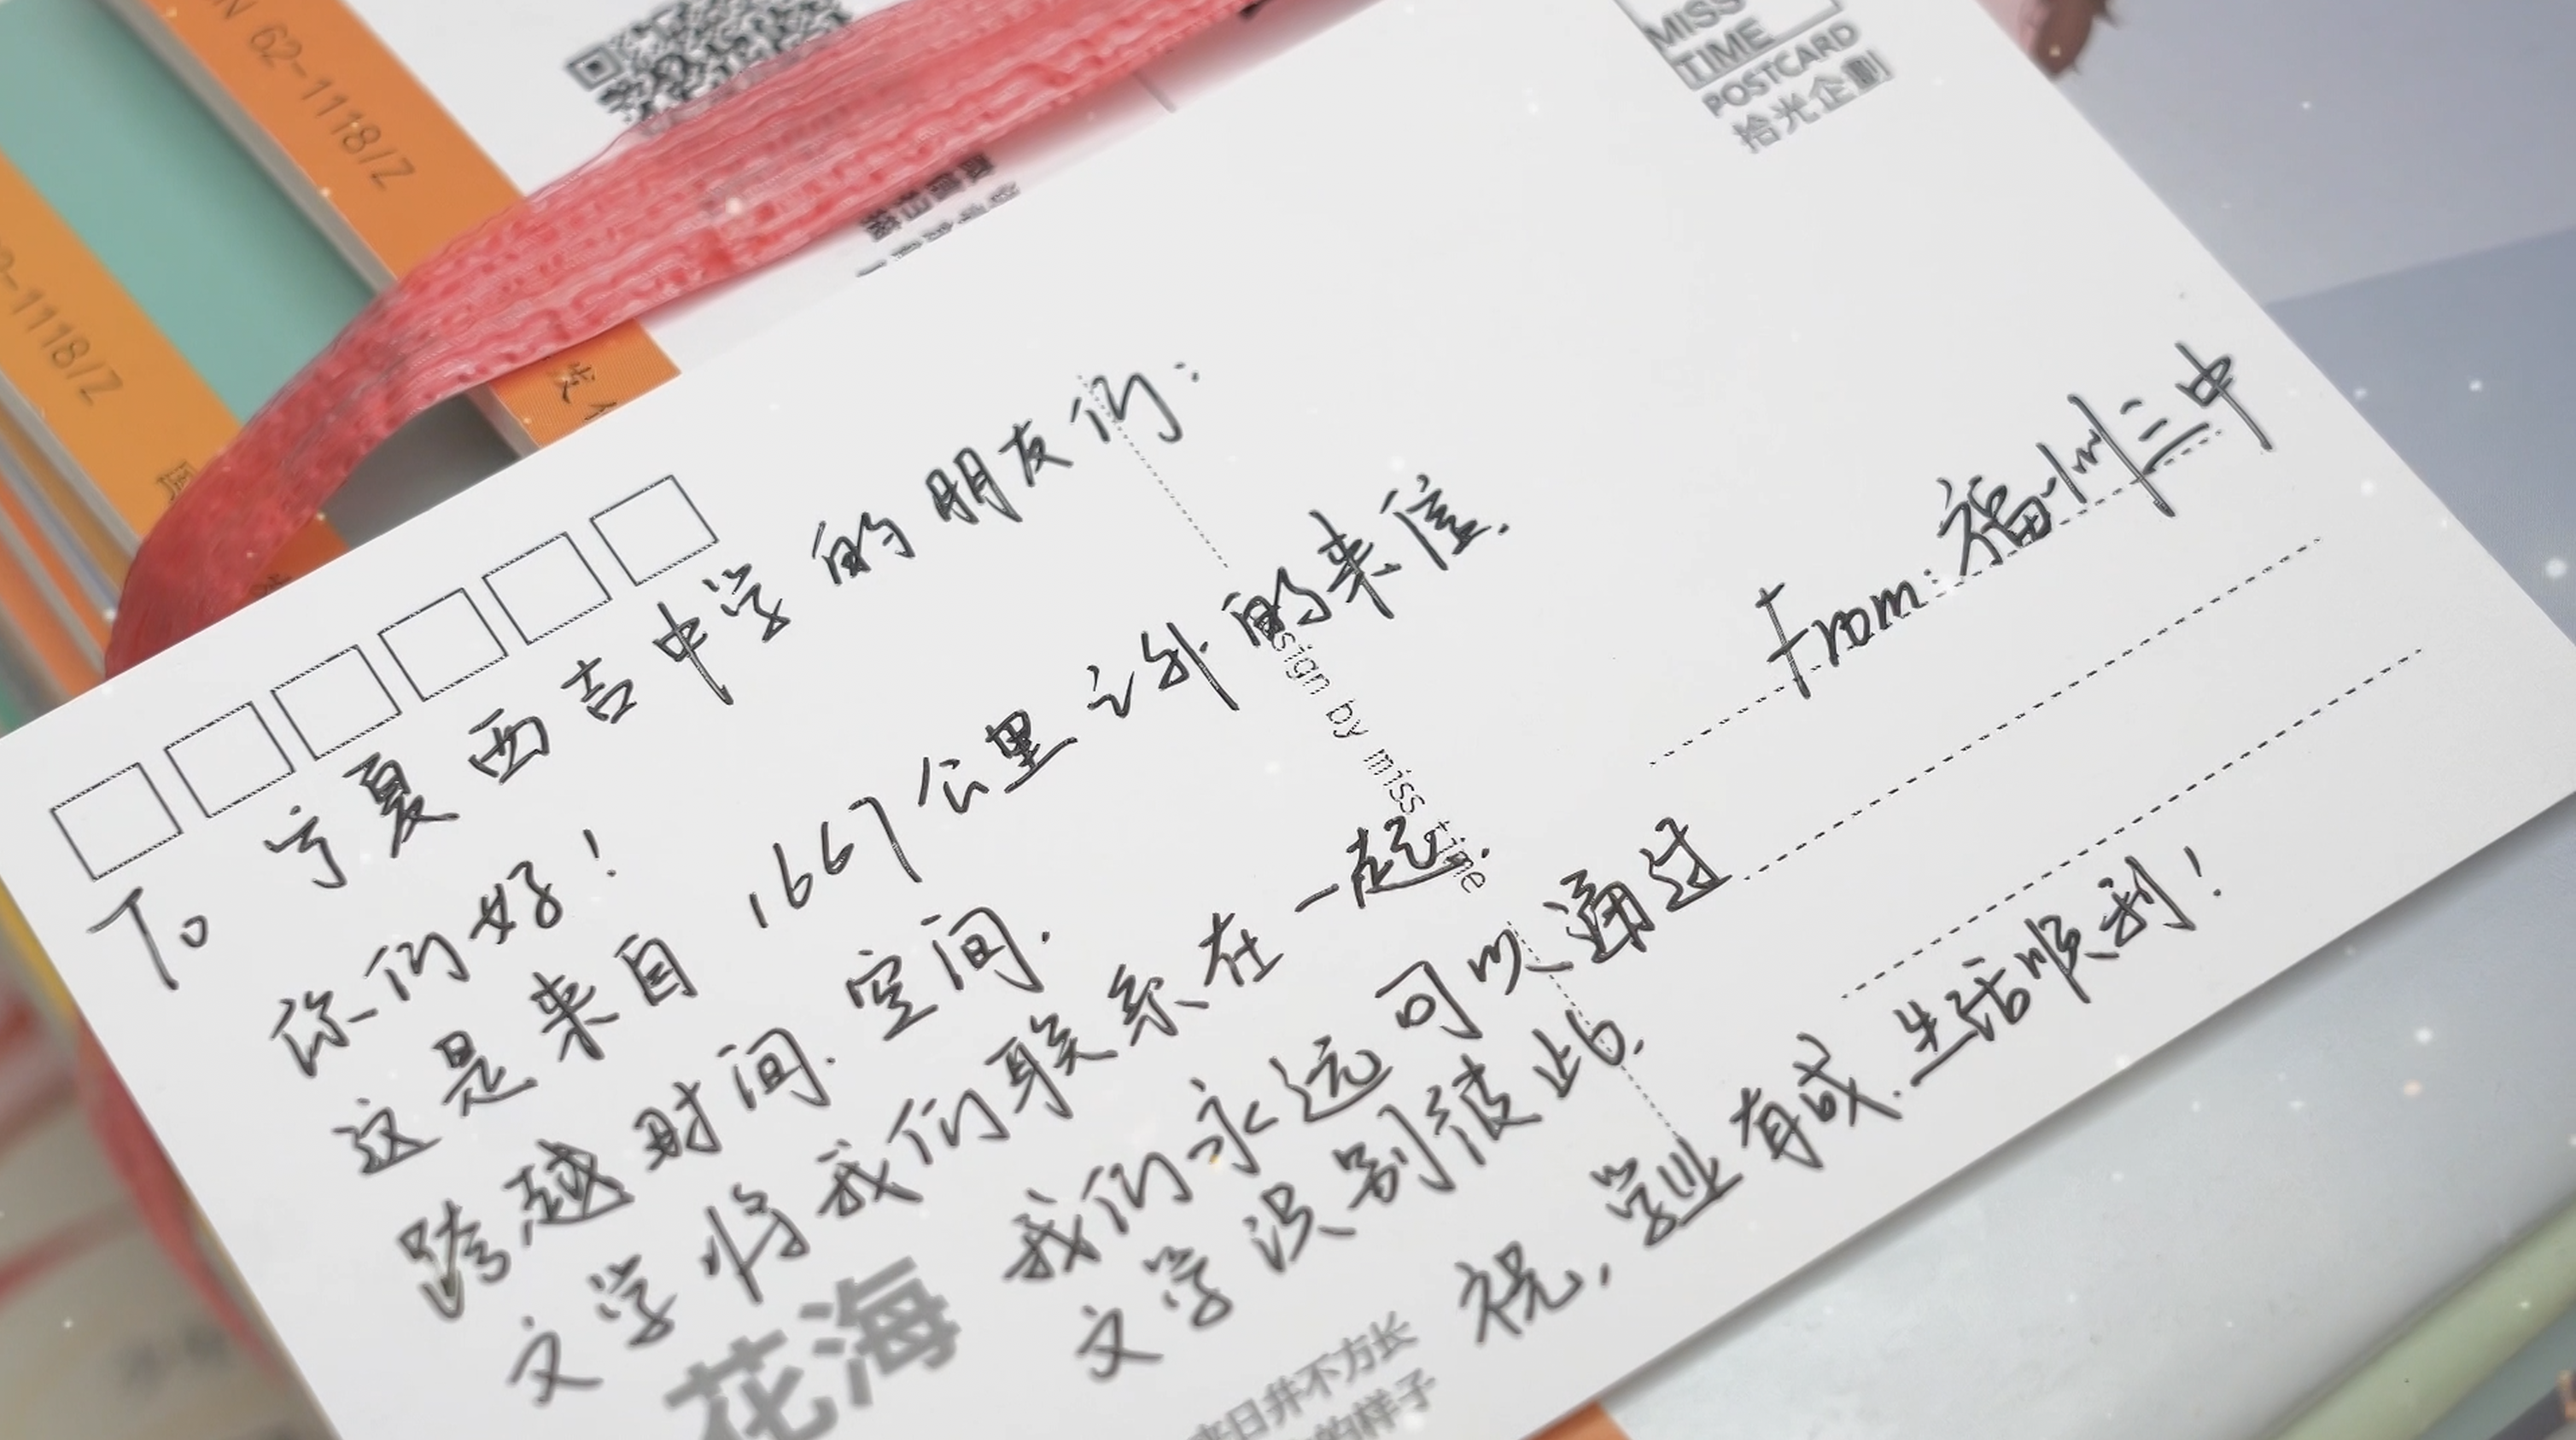 N 62-1118/Z
2-1118/Z
MISS
TIME
POSTCARD
拾光企劃
To 宁夏西吉中学的朋友们：
你们好！
这是来自1667公里之外的来信.
跨越时间.空间.
文学将我们联系在一起.
我们永远可以通过
文学识别彼此.
祝，学业有成.生活顺利！
From：福州三中
sign by miss time
花海
来日并不方长
的样子